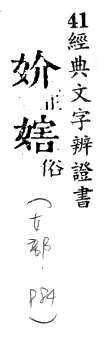 41經典文字辨證書
妎正
㜅俗
(女部.P84)